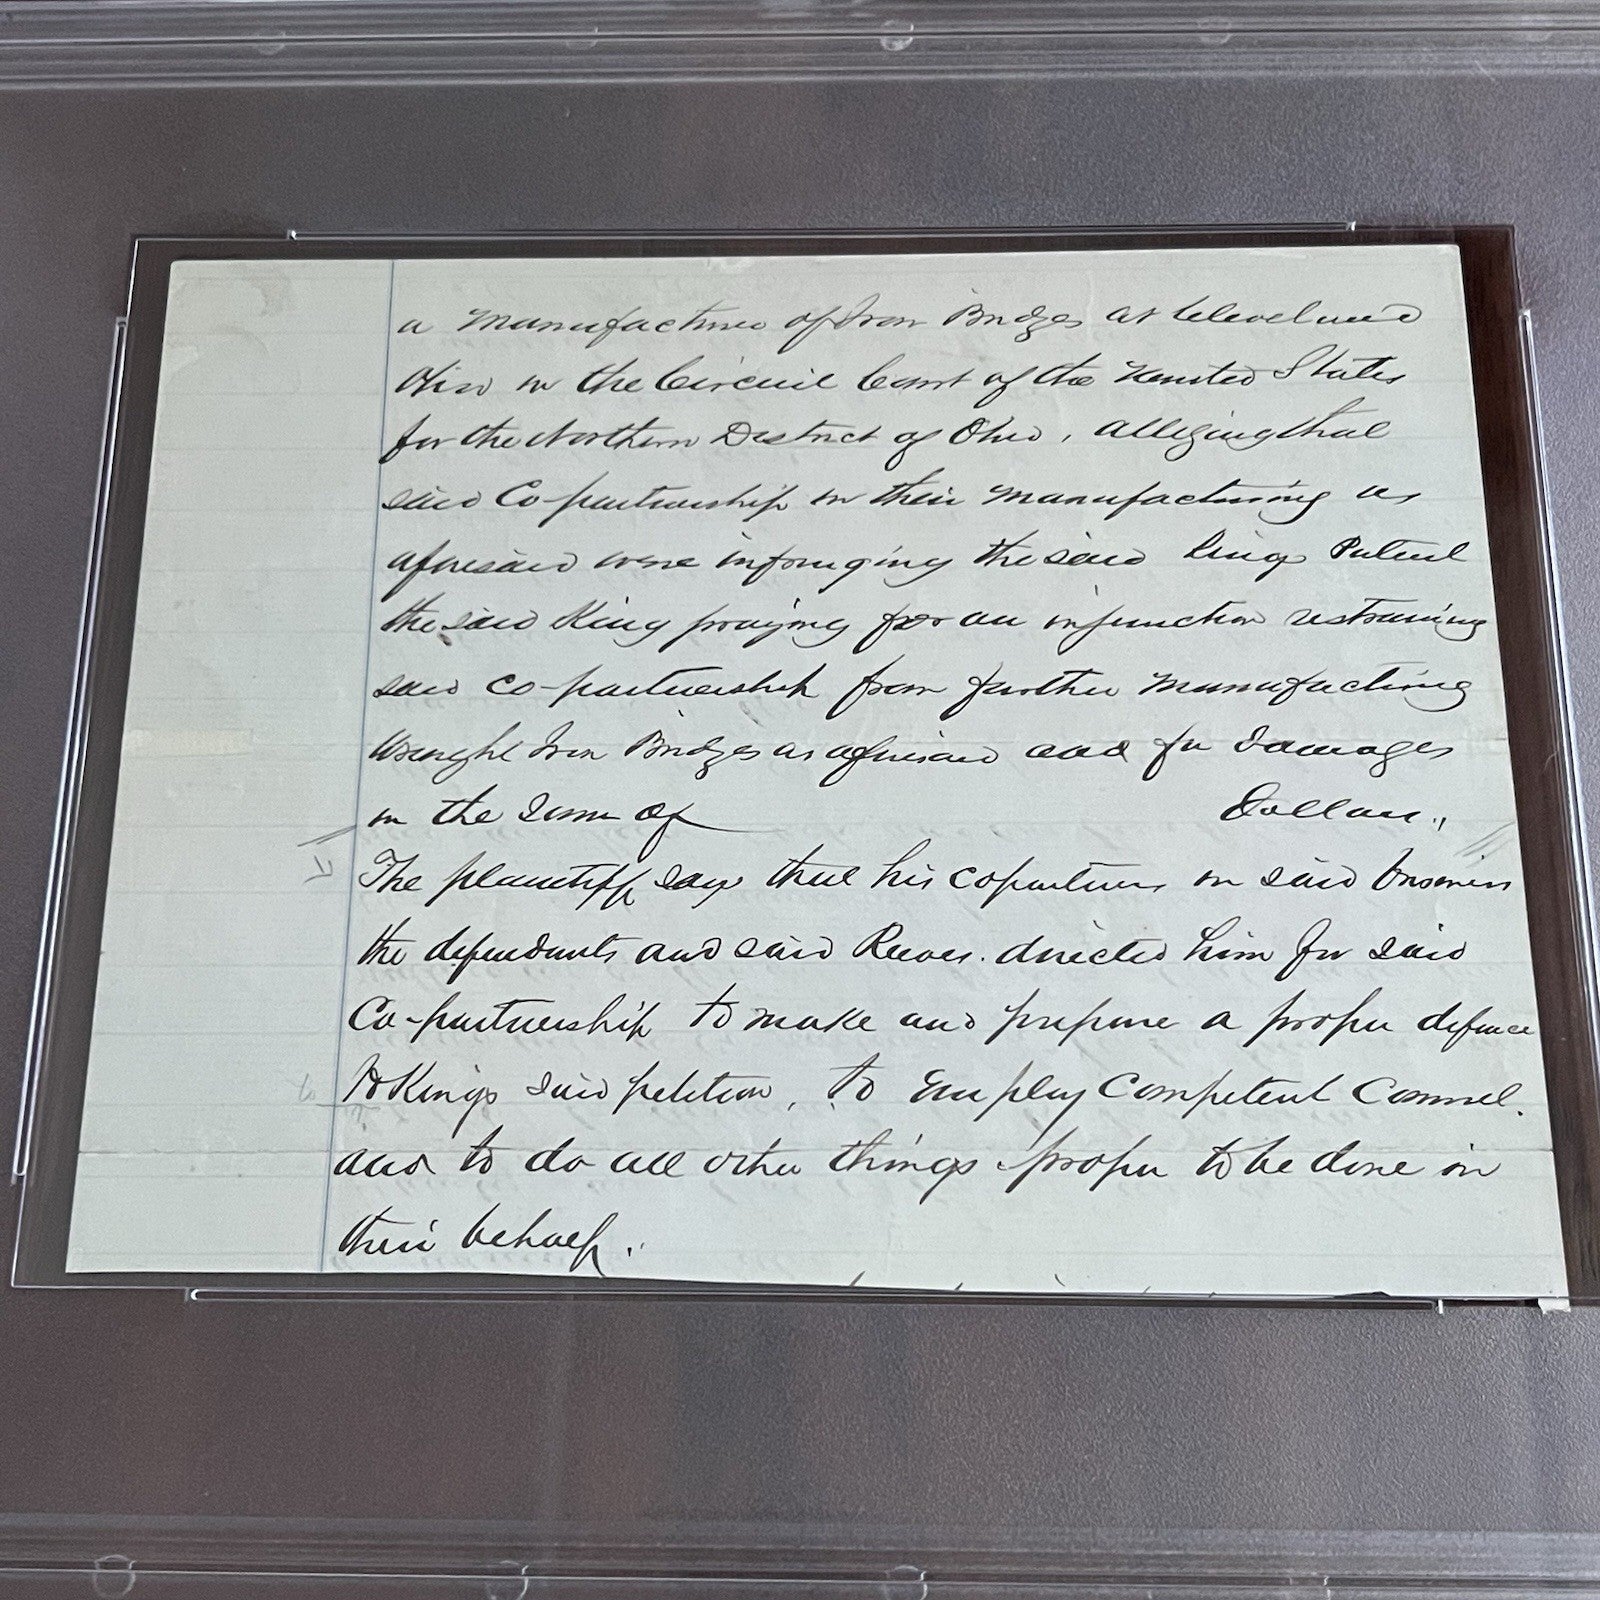 a manufacturer of Iron Bridges at Cleveland
Ohio in the Circuit Court of the United States
for the Northern District of Ohio, alleging that
said Co-partnership in their manufacturing as
aforesaid were infringing the said King Patent
the said King praying for an injunction restraining
said co-partnership from further manufacturing
Wrought Iron Bridges as aforesaid and for damages
in the sum of Dollars.,
The plaintiff says that his copartners in said business
the defendants and said Reeves. directed him for said
Co-partnership to make and prepare a proper defence
to Kings said petition, to employ Competent Counsel.
and to do all other things proper to be done in
their behalf.